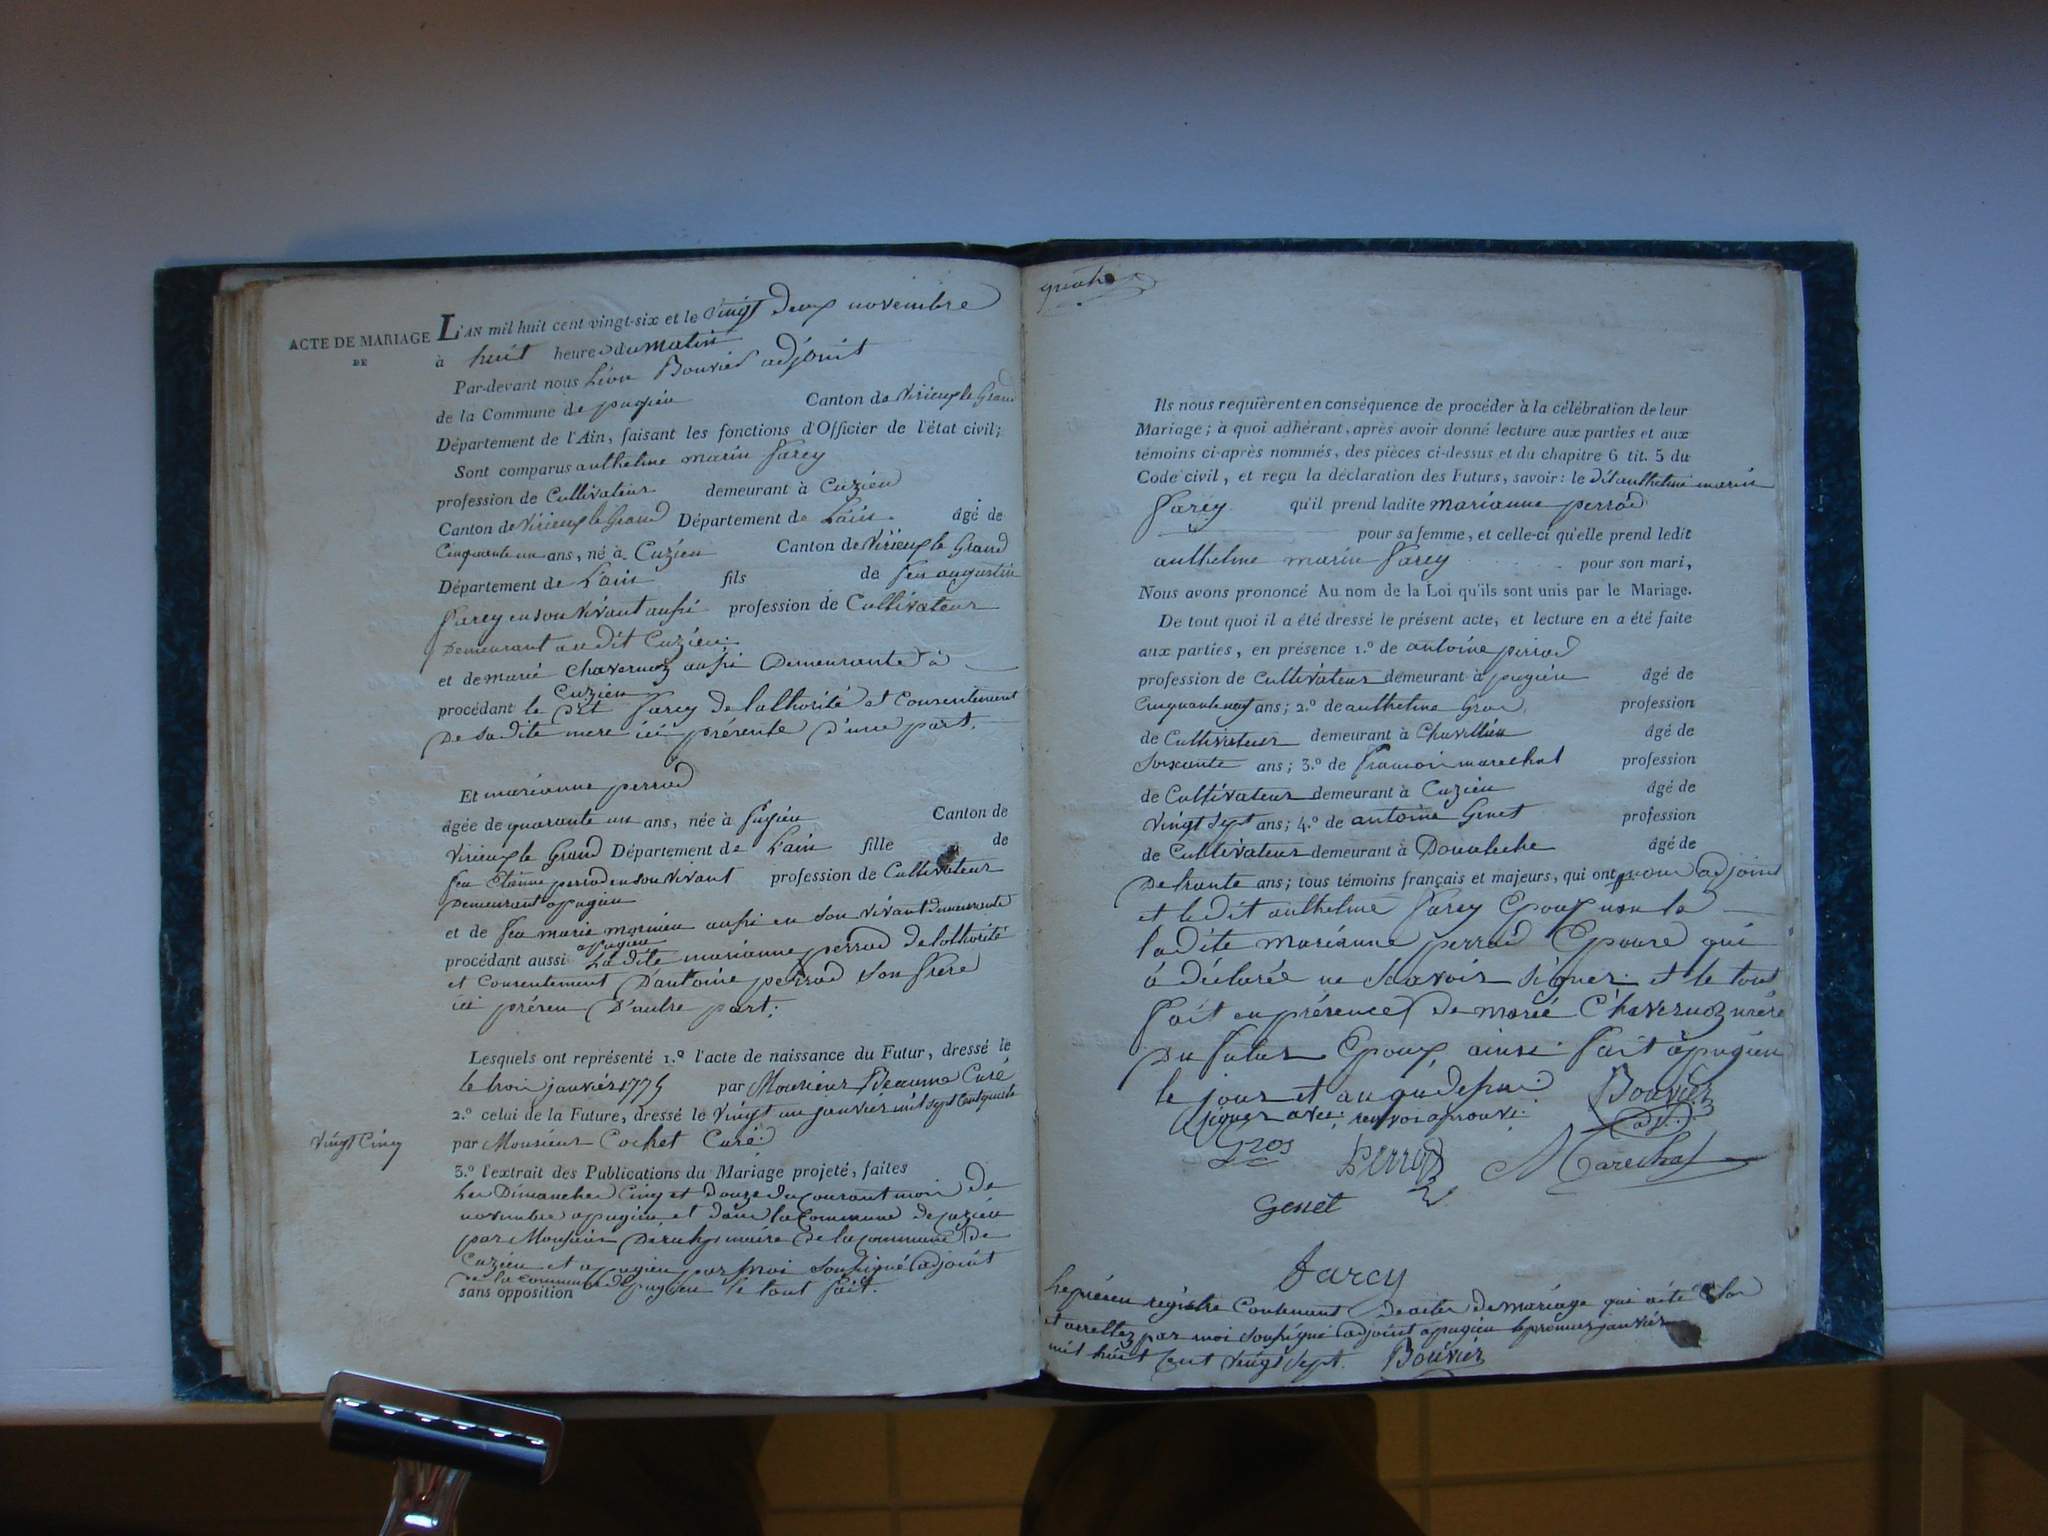 ACTE DE MARIAGE
DE
L'AN mil huit cent vingt-six et le vingt deux novembre
à huit heure du matin
Par-devant nous Léon Bouvier adjoint
de la Commune de pugieu Canton de Virieux le Grand
Département de l'Ain, faisant les fonctions d'Officier de l'état civil;
Sont comparus anthelme marin Farcy
profession de Cultivateur demeurant à Cuzieu
Canton de Virieux le Grand Département de L'ain âgé de
Cinquante un ans, né à Cuzieu Canton de Virieux le Grand
Département de L'ain fils de feu augustin
Farcy en son vivant aussi profession de Cultivateur
Demeurant audit Cuzieu
et de marie Chavernoz aussi Demeurante à
Cuzieu
procédant le dit Farcy de l'athorité et Consentement
De sa dite mere ici présente d'une part.
Et marianne perrod
âgée de quarante un ans, née à Pugieu Canton de
Virieux le Grand Département de L'ain fille de
feu Etienne perrod en son vivant profession de Cultivateur
Demeurant a pugieu
et de feu marie morinieu aussi en son vivant demeurante
a pugieu
procédant aussi La dite marianne perrod De lothorité
et Consentement D'antoine perrod Son frère
ici présen D'autre part.
Lesquels ont représenté 1.º l'acte de naissance du Futur, dressé le
le trois janvier 1775 par Monsieur Beaume Curé
2.º celui de la Future, dressé le vingt un janvier mil sept Cent quatre
vingt Cinq
par Monsieur Cochet Curé
3.º l'extrait des Publications du Mariage projeté, faites
Les Dimanches Cinq et douze du courant mois de
novembre a pugieu et dans la Commune de Cuzieu
par Monsieur maire de la commune de
Cuzieu et a pugieu par moi Soussigné adjoint
de la commune de pugieu le tout fait.
sans opposition
quatre
Ils nous requièrent en conséquence de procéder à la célébration de leur
Mariage; à quoi adhérant, après avoir donné lecture aux parties et aux
témoins ci-après nommés, des pièces ci-dessus et du chapitre 6 tit. 5 du
Code civil, et reçu la déclaration des Futurs, savoir: le dit anthelme marin
Farcy qu'il prend ladite marianne perrod
pour sa femme, et celle-ci qu'elle prend ledit
anthelme marin Farcy pour son mari,
Nous avons prononcé Au nom de la Loi qu'ils sont unis par le Mariage.
De tout quoi il a été dressé le présent acte, et lecture en a été faite
aux parties, en présence 1.º de antoine perrod
profession de Cultivateur demeurant à pugieu âgé de
Cinquante neuf ans; 2.º de anthelme Gros profession
de Cultivateur demeurant à Chavillieu âgé de
Soixante ans; 3.º de Francois marechal profession
de Cultivateur demeurant à Cuzieu âgé de
vingt Sept ans; 4.º de antoine Genet profession
de Cultivateur demeurant à âgé de
De trante ans; tous témoins français et majeurs, qui ont nous adjoint
et le dit anthelme Farcy Epoux non la
ladite marianne perrod Epouse qui
à déclaré ne Savoir Signer et le tout
Fait en présence de marie Chavernoz mère
Du futur Epoux ainsi fait à pugieu
le jour et an que dessus Bouvier
Signer avec renvoi aprouvé
adj.
Gros Perrod Marechal
Genet
Farcy
Le présen registre Contenant de mariage qui a été Clos
et arrettez par moi Soussigné adjoint a pugieu le premier janvier
mil huit Cent vingt Sept. Bouvier